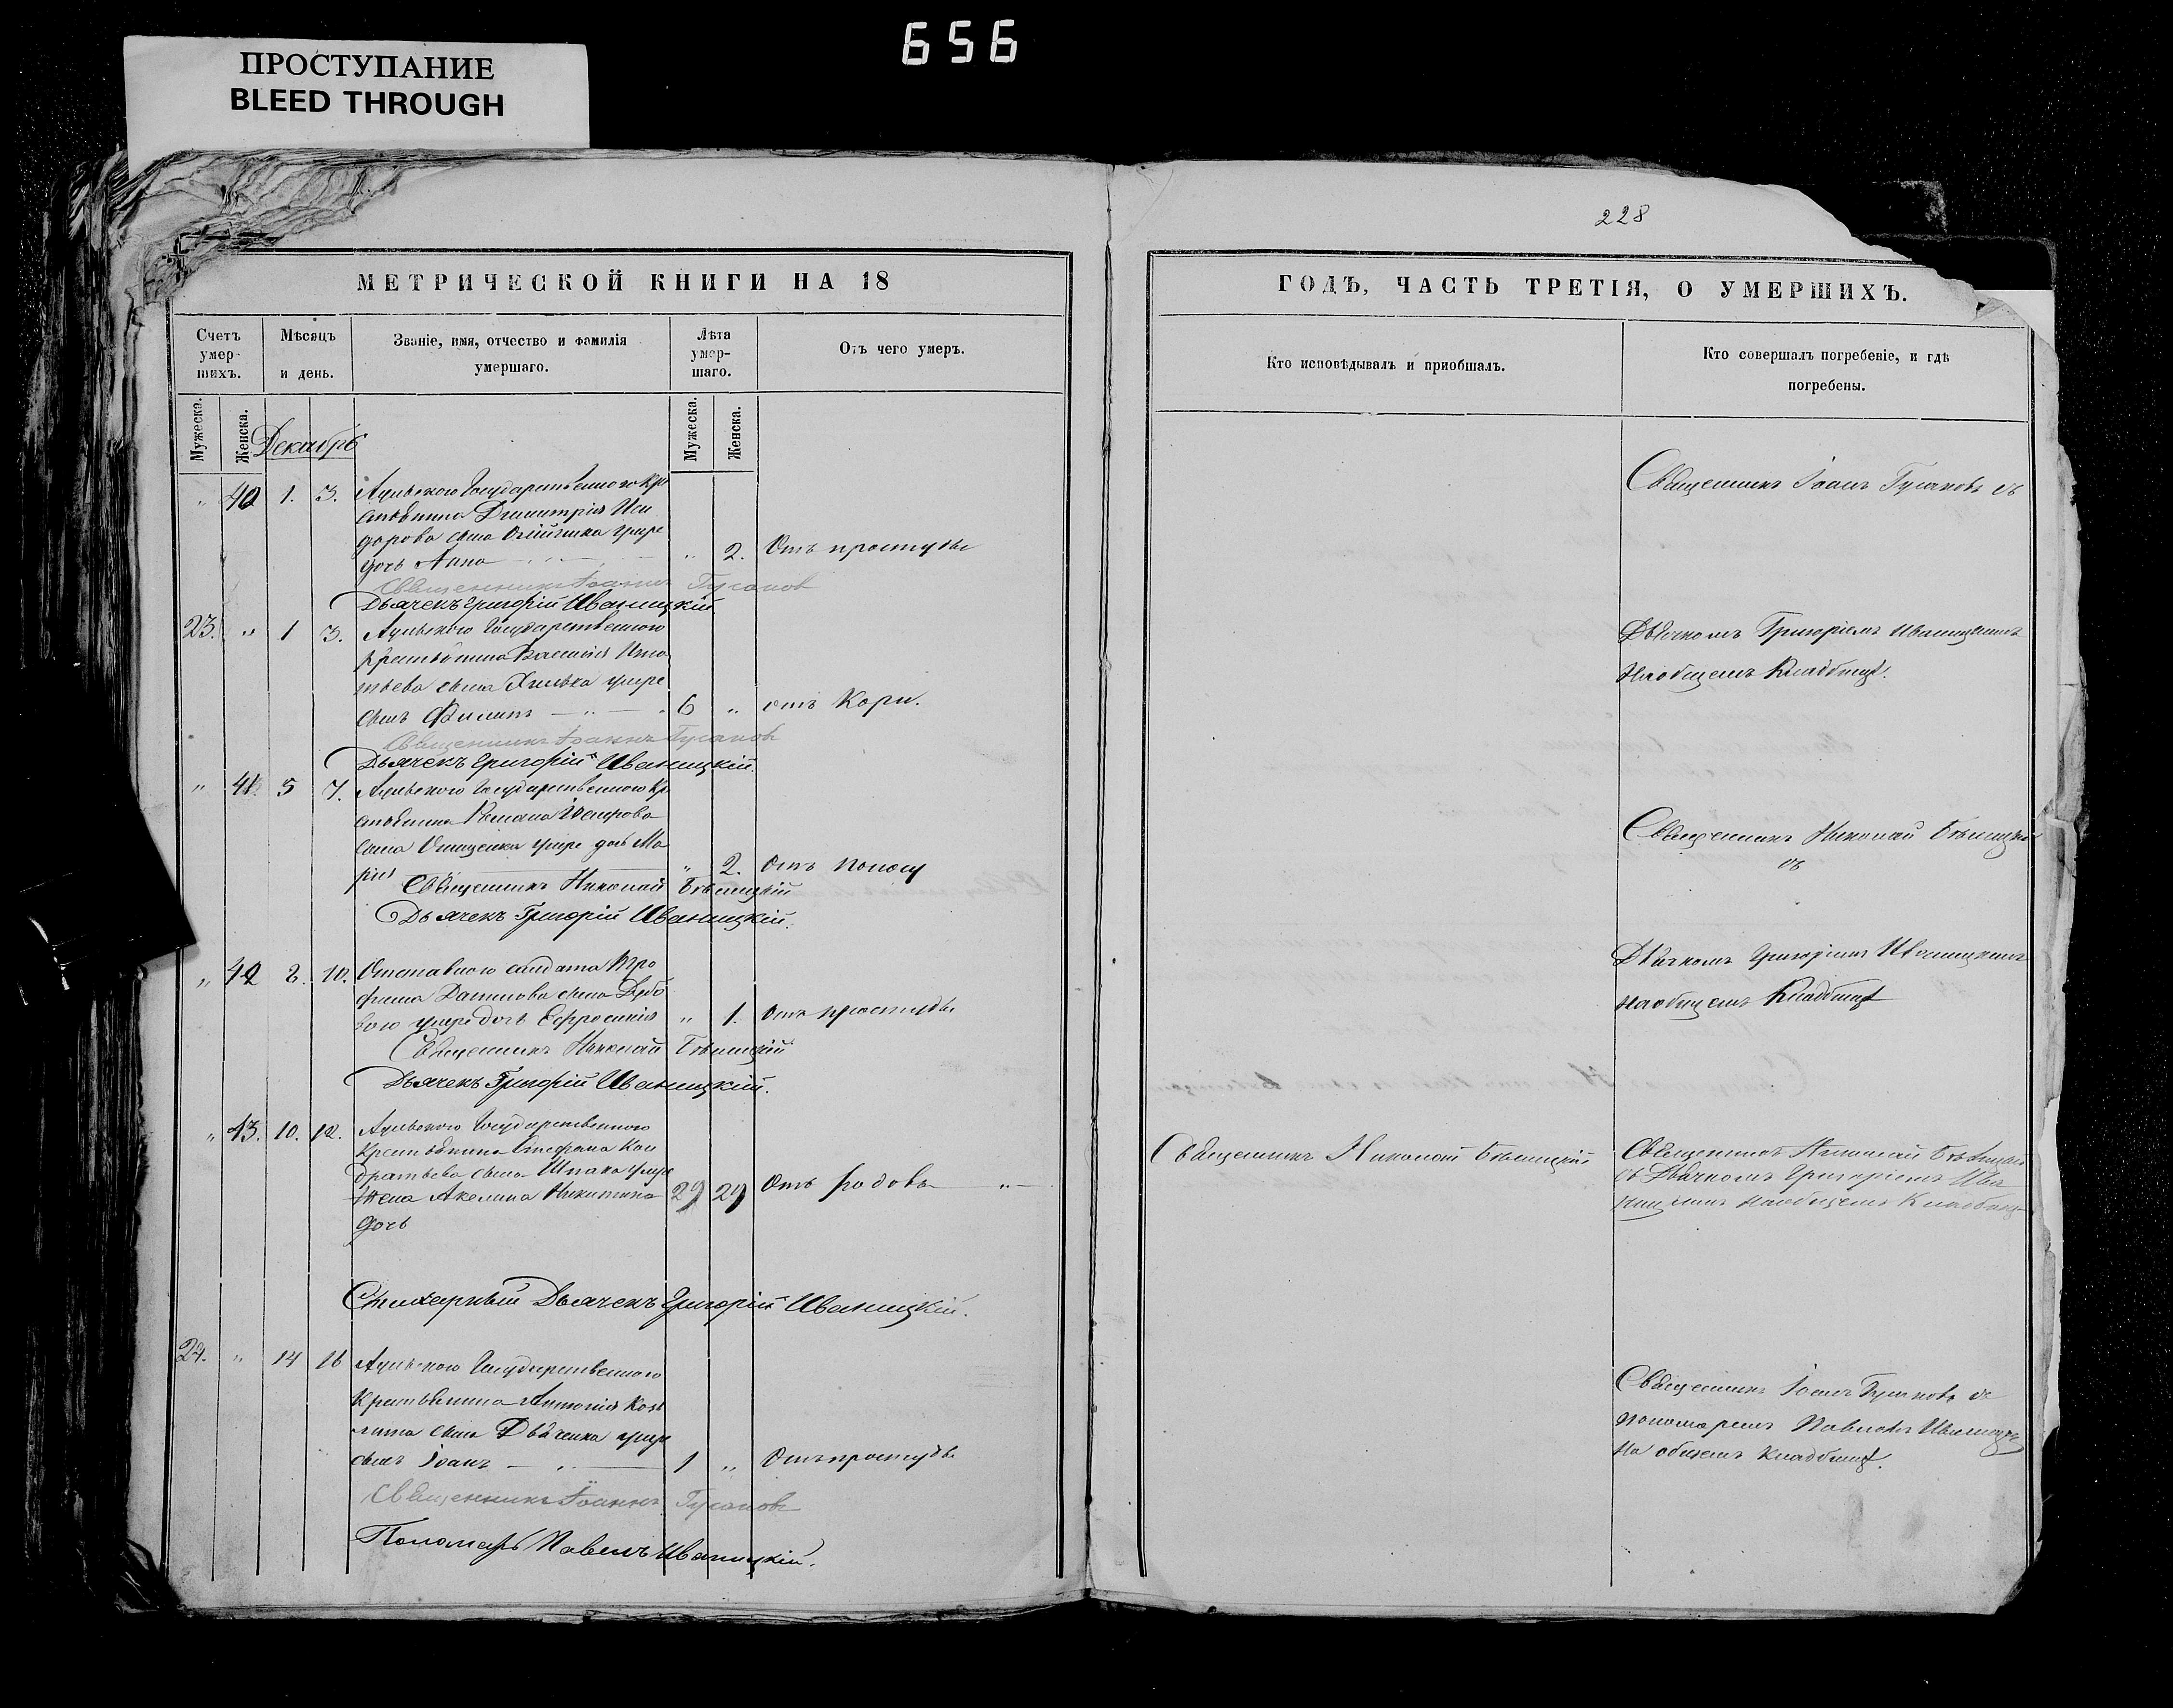 656
ПРОСТУПАНИЕ
BLEED THROUGH
228
МЕТРИЧЕСКОЙ КНИГИ НА 18
Счетъ умер-шихъ.
Мѣсяцъ и день.
Званіе, имя, отчество и фамилія умершаго.
Лѣта умер-шаго.
Отъ чего умеръ.
Мужеска.
Женска.
Мужеска.
Женска.
Декабрь
" 40 1. 3. Аульского Государственного кре
стьянина Димитрія Иси
дорова сына Олійника умре
дочь Анна " 2. Отъ простуды
Священникъ Іоаннъ Гусаковъ
Дьячекъ Григорій Иваницкій
23. " 1 3. Аульского Государственного
Крестьянина Василія
сына умре
сынъ Филипъ 6 " отъ Кори.
Священникъ Іоаннъ Гусаковъ
Дьячекъ Григорій Иваницкій.
" 41. 5 7. Аульского Государственного кре
стьянина Романа
сына Онищенка умре дочь Ма
рія " 2. Отъ поносу
Священникъ Николай Бѣлицкій
Дьячекъ Григорій Иваницкій.
" 42 8. 10. Отставного солдата Тро
фима Данилова сына
умре дочь Ефросинія " 1. Отъ простуды
Священникъ Николай Бѣлицкій
Дьячекъ Григорій Иваницкій.
" 43. 10. 12. Аульского Государственного
Крестьянина Стефана Кон
дратьева сына Шпака умре
Жена Акелина Никитина 29 29 Отъ родовъ
дочь
Стихарный Дьячекъ Григорій Иваницкій.
24. " 14 16 Аульского Государственного
Крестьянина Антонія Коз
мина сына Дьяченка умре
сынъ Іоанъ 1 " Отъ простуды
Священникъ Іоаннъ Гусаковъ
Пономарь Павелъ Иваницкій.
ГОДЪ, ЧАСТЬ ТРЕТІЯ, О УМЕРШИХЪ.
Кто исповѣдывалъ и пріобщалъ.
Кто совершалъ погребеніе, и гдѣ погребены.
Священникъ Іоанъ Гусаковъ съ
Дьячкомъ Григоріемъ Иваницкимъ
На общемъ Кладбищѣ.
Священникъ Николай Бѣлицкій
съ
Дьячкомъ Григоріемъ Иваницкимъ
на общемъ Кладбищѣ
Священникъ Николай Бѣлицкій
Священникъ Николай Бѣлицкій
съ Дьячкомъ Григоріемъ Ива
ницкимъ на общемъ Кладбищѣ
Священникъ Іоанъ Гусаковъ съ
пономаремъ Павломъ Иваницкимъ
На общемъ Кладбищѣ.